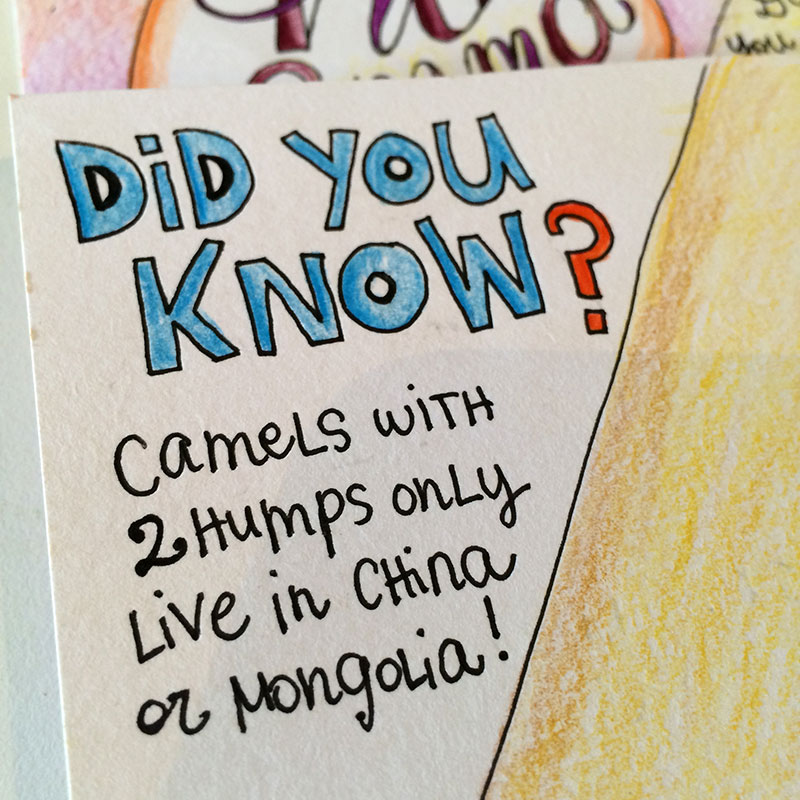 you
DiD YOU
KNOW?
CameLS WITH
2 HUmPS ONLy
Live in CHina
or MongoLia!